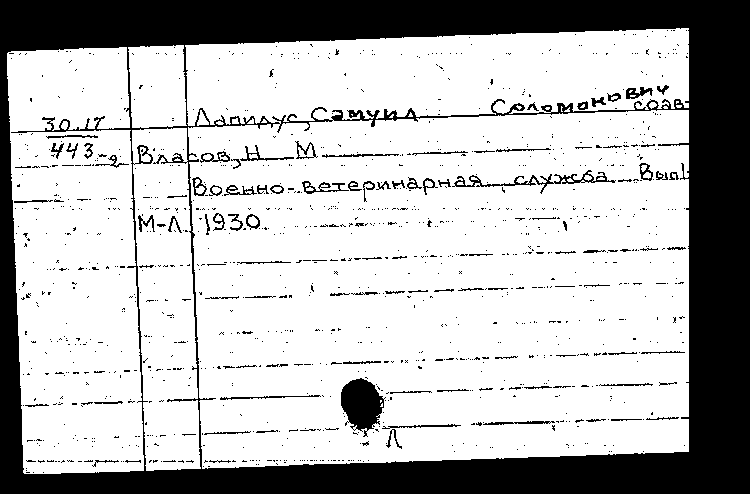 Лапидус, Самуил Соломонович
30.17 соав-
443-2 Власов, Н М
Военно-ветеринарная служба Вып1
М-Л 1930.
Л